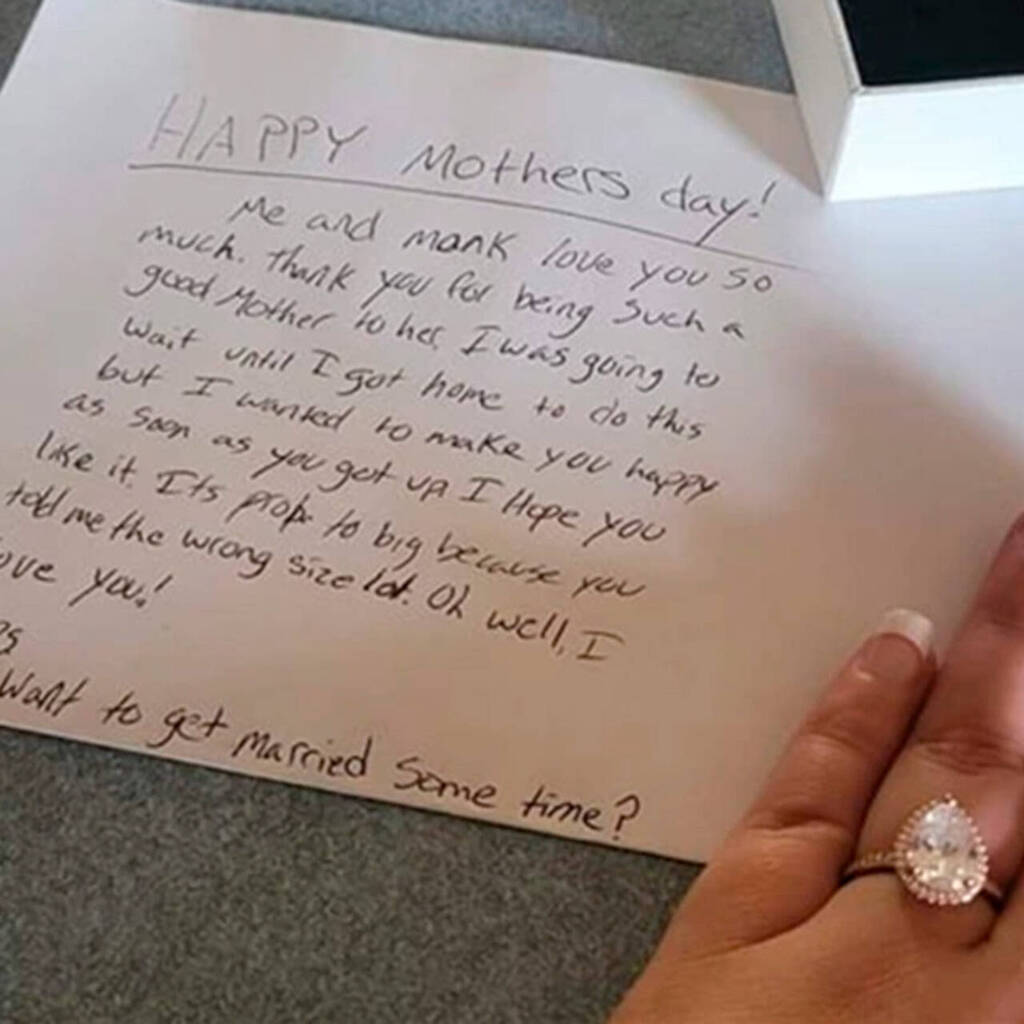 HAPPY Mothers day!
Me and monk love you so
much. thank you for being such a
good Mother to her. I was going to
wait until I got home to do this
but I wanted to make you happy
as soon as you got up I Hope you
like it Its prob to big because you
told me the wrong size lol. Oh well, I
ove you!
Want to get married some time?